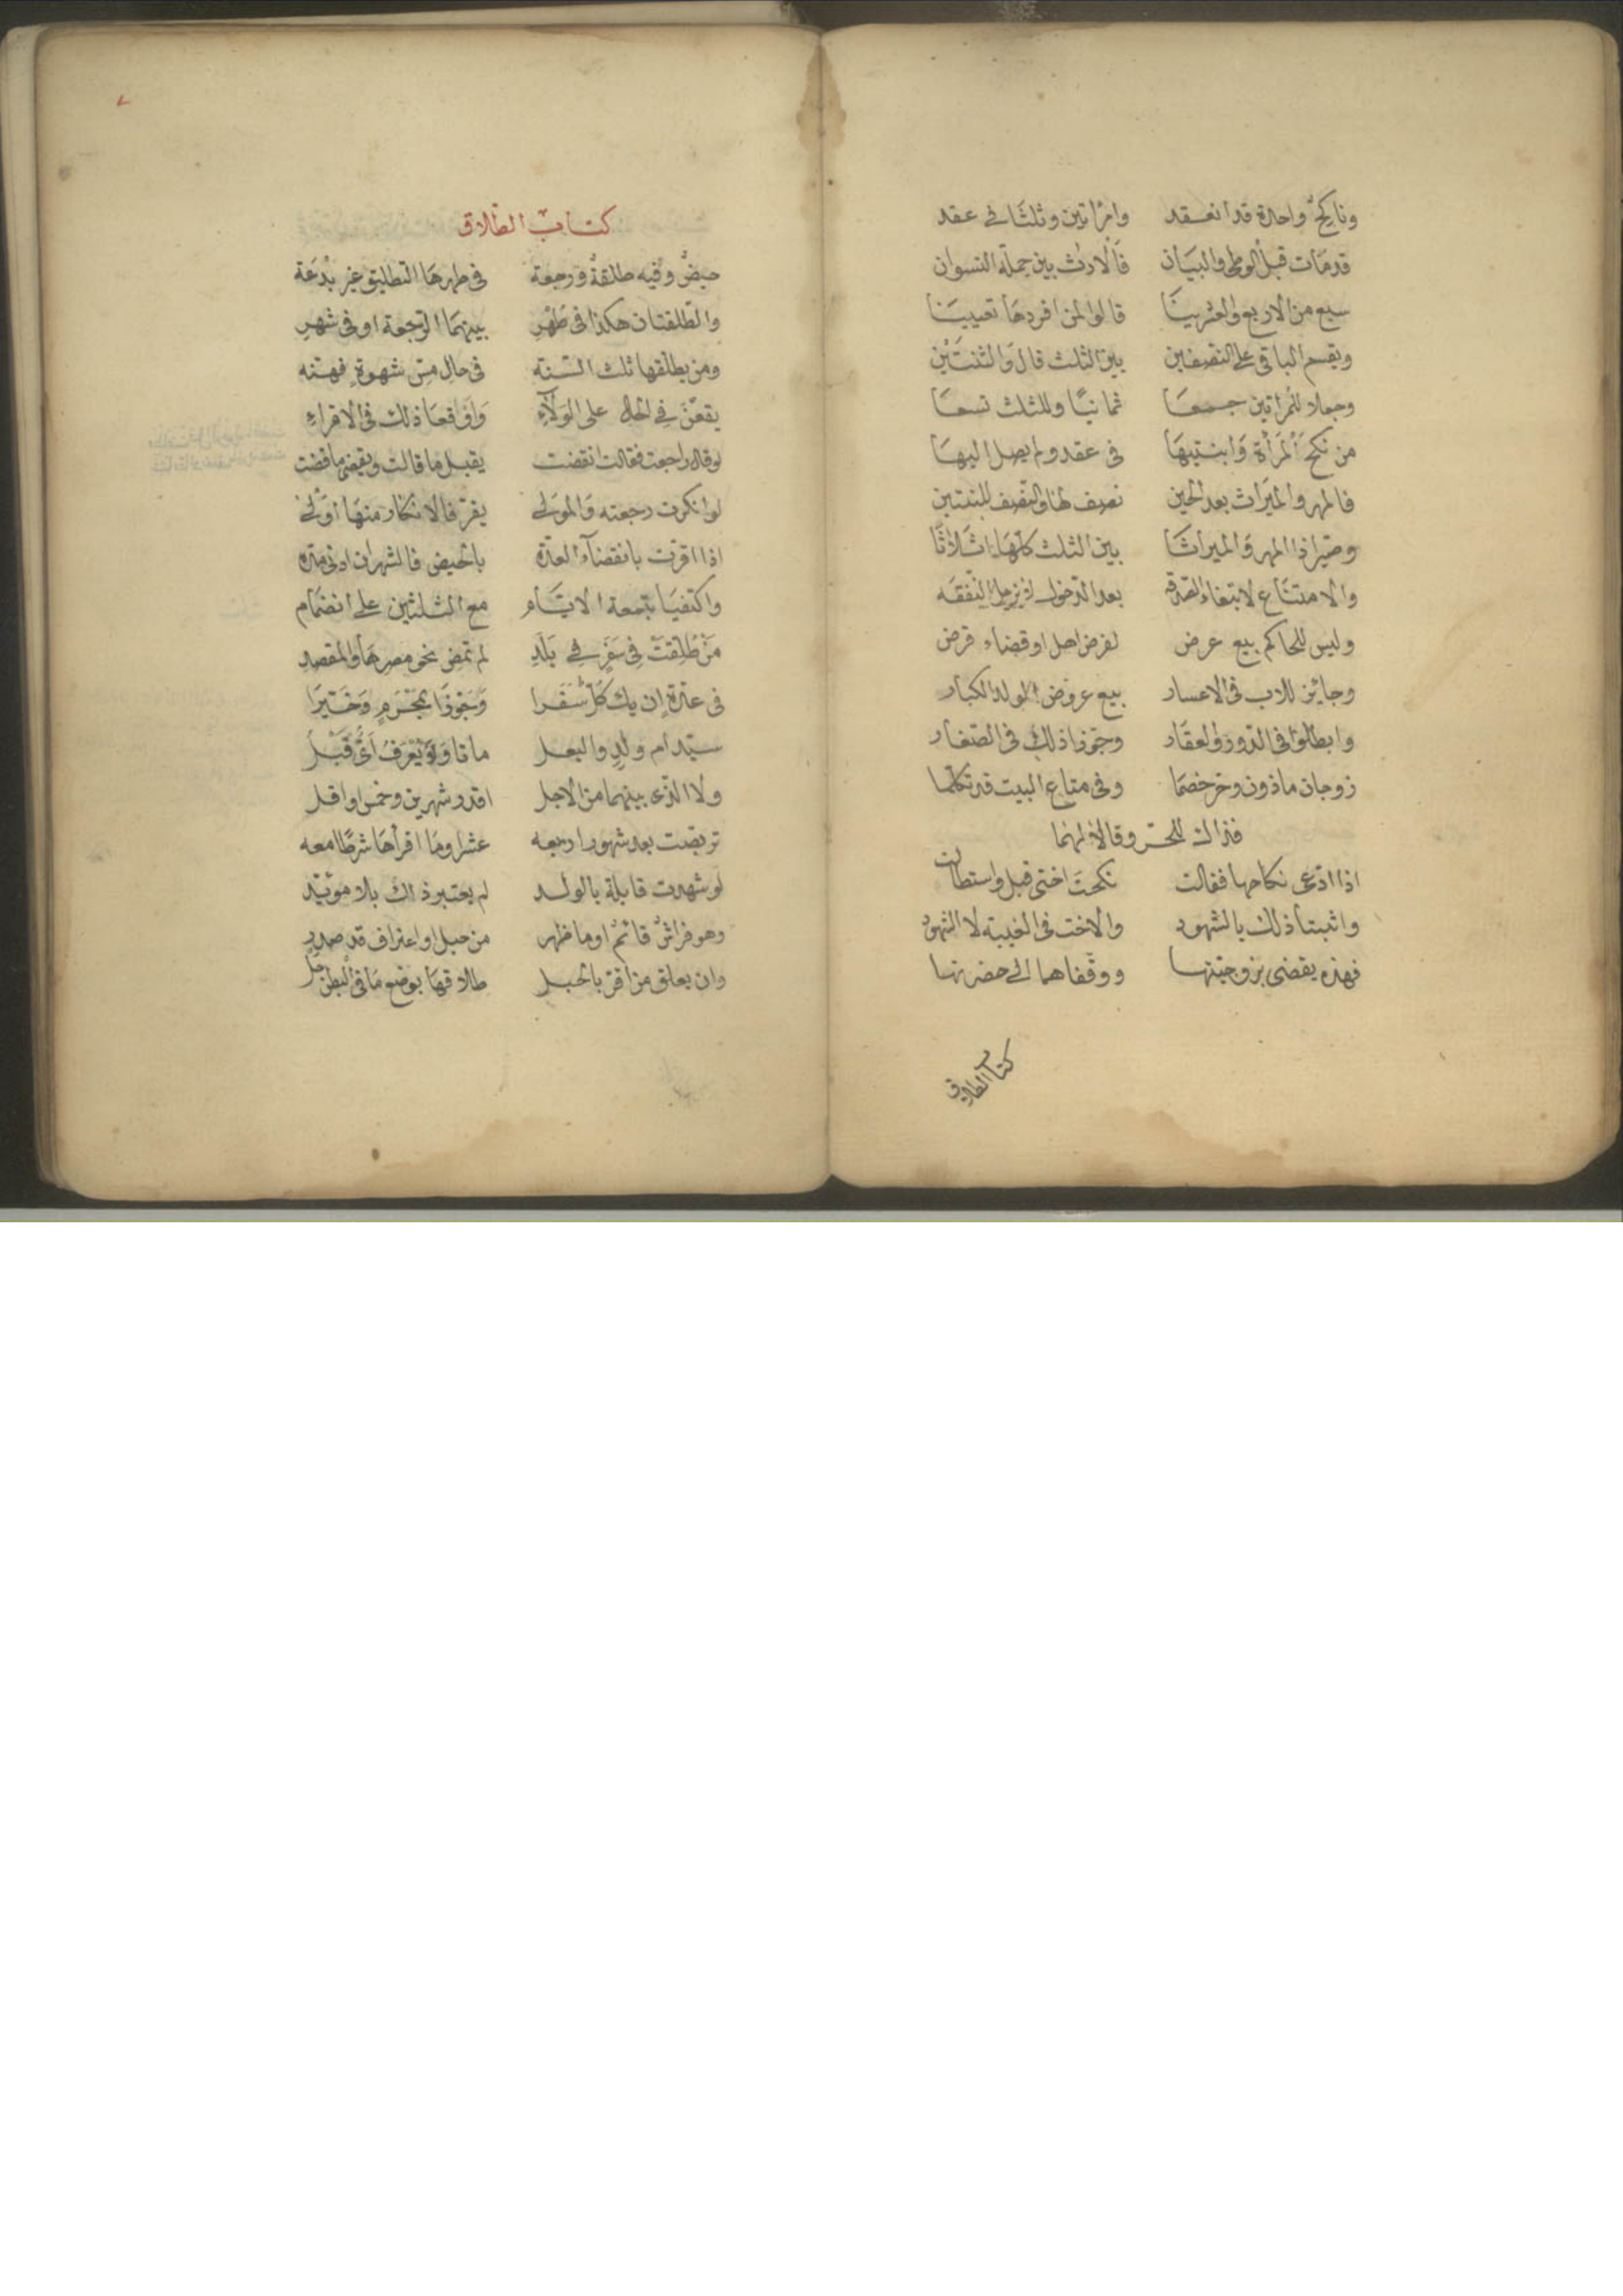 وناكح واحدة قد انعقد وامرأتين وثلثا في عقد
قد مات قبل الوطى والبيان فالارث بين جملة النسوان
سبع من الاربع والعشرينا قالوا لمن افردها تعيينا
ويقسم الباقي على النصفين بين الثلث قال والثنتين
وجعلا للمرأتين جمعا ثمانيا وللثلث تسعا
من نكح المرأة وابنتيها في عقد ولم يصل اليها
فالمهر والميراث بعد الحين نصف لها والنصف للبنتين
وصيرا ذا المهر والميراثا بين الثلث كلها اثلاثا
والامتناع لابتغاء الصدقه بعد الدخول لا يزيل النفقه
وليس للحاكم بيع عرض لفرض اهل او قضاء قرض
وجائز للاب في الاعسار بيع عروض الولد الكبار
وابطلوا في الدور والعقار وجوزا ذلك في الصغار
زوجان ماذون وحر خصما وفي متاع البيت قد تكلما
فذاك للحر وقالا لهما
اذا ادعى نكاحها فقالت نكحت اختى قبل واستطالت
واثبتا ذلك بالشهود والاخت في الغيبة لا الشهود
فهذه يقضى بزوجيتها ووقفاهما الى حضرتها
كتاب الطلاق
٧
كتاب الطلاق
حيض وفيه طلقة ورجعة في طهرها التطليق غير بدعة
والطلقتان هكذا في طهر بينهما الرجعة او في شهر
ومن يطلقها ثلث السنه في حال مس شهوة فهنه
يقعن في الحال على الولاء واوقعا ذلك في الاقراء
لو قال راجعت فقالت انقضت يقبل ما قالت ويقضى ما قضت
لو انكرت رجعته والمولى يقر فالانكار منها اولى
اذا اقرت بانقضاء العدة بالحيض فالشهران ادنى مده
واكتفيا بتسعة الايام مع الثلثين على انضمام
من طلقت في سفر في بلد لم تمض نحو مصرها والمقصد
في عدة ان يك كل سفرا وجوزا بمحرم وخيرا
سيد ام ولد والبعل ماتا ولا يعرف اى قبل
ولا الذى بينهما من الاجل اقدر شهرين وخمس او اقل
تربصت بعد شهورا اربعه عشرا وما اقرأها شرطا معه
لو شهدت قابلة بالولد لم يعتبر ذاك بلا مؤيد
وهو فراش قائم او ما ظهر من حبل او اعتراف قد صدر
وان يعلق من اقر بالحبل طلاقها بوضع ما في البطن حل